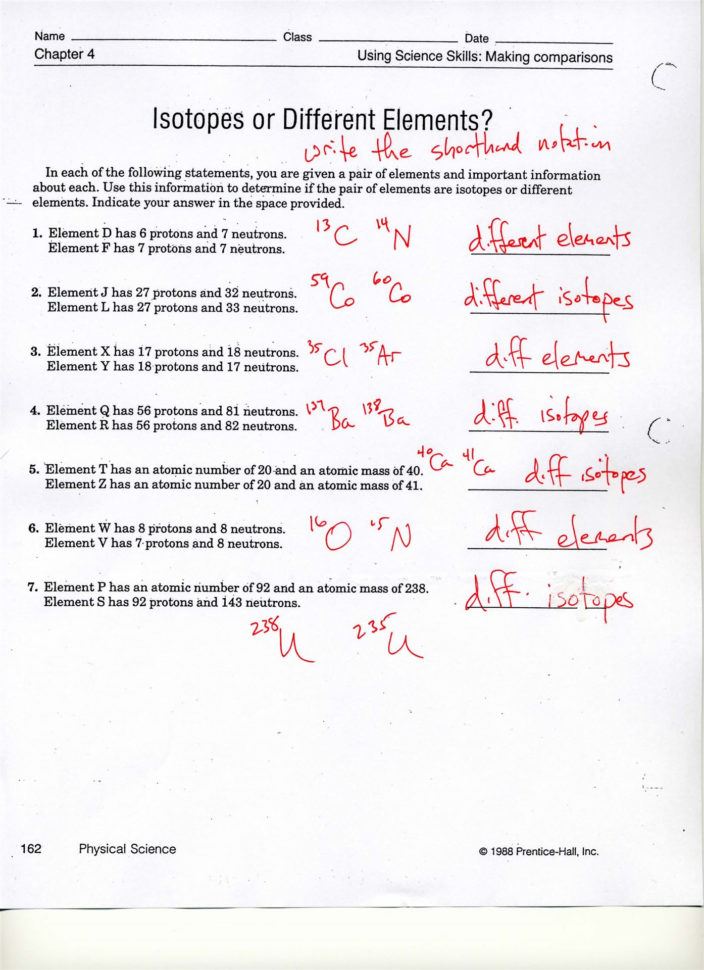 Name ____________ Class ____________ Date ____________
Chapter 4 Using Science Skills: Making comparisons
Isotopes or Different Elements?
write the shorthand notation
In each of the following statements, you are given a pair of elements and important information
about each. Use this information to determine if the pair of elements are isotopes or different
elements. Indicate your answer in the space provided.
1. Element D has 6 protons and 7 neutrons. ¹³C ¹⁴N different elements
Element F has 7 protons and 7 neutrons.
2. Element J has 27 protons and 32 neutrons. ⁵⁹Co ⁶⁰Co different isotopes
Element L has 27 protons and 33 neutrons.
3. Element X has 17 protons and 18 neutrons. ³⁵Cl ³⁵Ar diff elements
Element Y has 18 protons and 17 neutrons.
4. Element Q has 56 protons and 81 neutrons. ¹³⁷Ba ¹³⁸Ba diff. isotopes
Element R has 56 protons and 82 neutrons.
5. Element T has an atomic number of 20 and an atomic mass of 40. ⁴⁰Ca ⁴¹Ca diff isotopes
Element Z has an atomic number of 20 and an atomic mass of 41.
6. Element W has 8 protons and 8 neutrons. ¹⁶O ¹⁵N diff elements
Element V has 7 protons and 8 neutrons.
7. Element P has an atomic number of 92 and an atomic mass of 238. diff. isotopes
Element S has 92 protons and 143 neutrons.
²³⁸U ²³⁵U
162 Physical Science © 1988 Prentice-Hall, Inc.